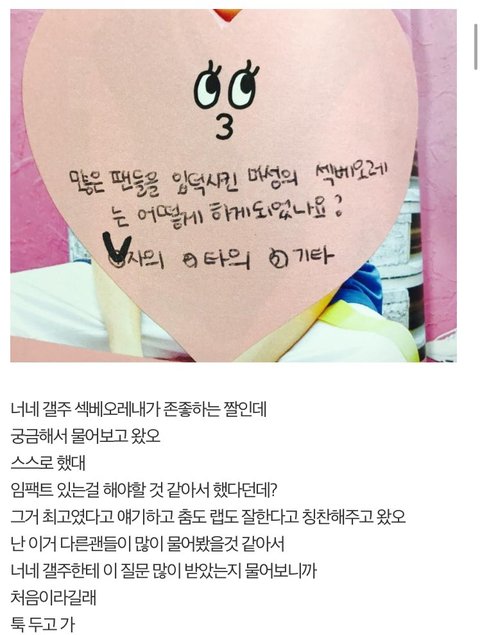 많은 팬들을 입덕시킨 마성의 섹베오레
는 어떻게 하게되었나요?
자의 타의 기타
너네 갤주 섹베오레내가 존좋하는 짤인데
궁금해서 물어보고 왔오
스스로 했대
임팩트 있는걸 해야할 것 같아서 했다던데?
그거 최고였다고 얘기하고 춤도 랩도 잘한다고 칭찬해주고 왔오
난 이거 다른괜들이 많이 물어봤을것 같아서
너네 갤주한테 이 질문 많이 받았는지 물어보니까
처음이라길래
툭 두고 가